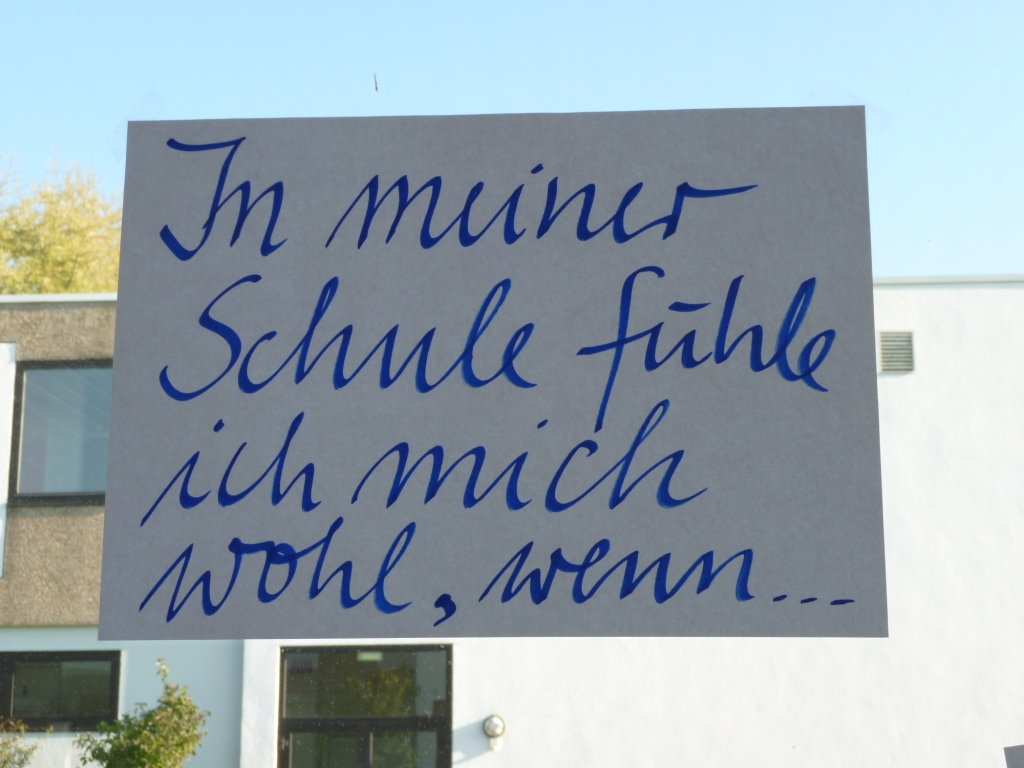 In meiner
Schule fühle
ich mich
wohl, wenn...